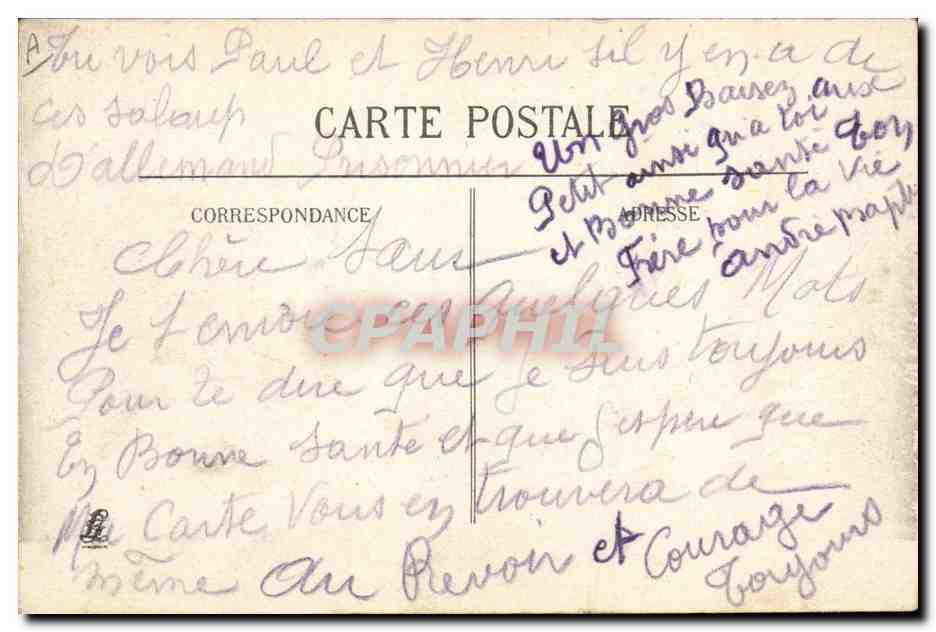 A
Tu vois Paul et Henri sil y en a de
ces saloup
d'allemand Prisonnier
CARTE POSTALE
Un gros Baisez aux
Petit ainsi qu'a toi
et Bonne santé ton
Frére pour la Vie
andre
CORRESPONDANCE
ADRESSE
Chère
Je t'envoie ces quelques Mots
Pour te dire que je suis toujours
En Bonne santé et que j'espere que
Ma Carte Vous en trouvera de
même Au Revoir et Courage
Toujours
CPAPHIL